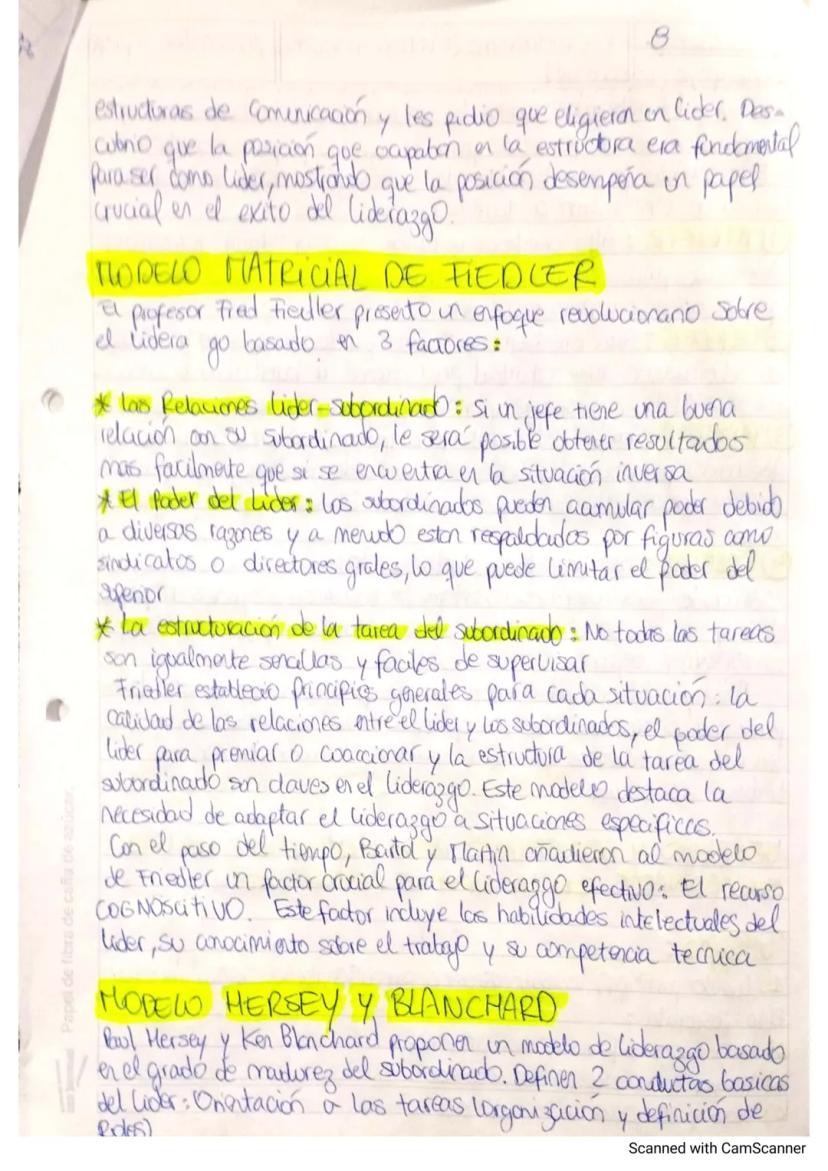 8
estructuras de comunicación y les pidio que eligieran un lider. Des-
cubrio que la posicion que ocupaban en la estructura era fundamental
para ser como lider, mostrando que la posición desempeña un papel
crucial en el exito del liderazgo.
MODELO MATRICIAL DE FIEDLER
El profesor Fred Fiedler presento un enfoque revolucionario sobre
el lidera go basado en 3 factores:
* Las Relaciones Lider-subordinado: Si un jefe tiene una buena
relación con su subordinado, le será posible obtener resultados
mas facilmente que si se encuentra en la situación inversa
* El Poder del Lider: Los subordinados pueden acumular poder debido
a diversas razones y a menudo estan respaldados por figuras como
sindicatos o directores grales, lo que puede limitar el poder del
superior
* La estructuración de la tarea del subordinado: No todas las tareas
son igualmente sencillas y faciles de supervisar
Friedler establecio principios generales para cada situación: la
calidad de las relaciones entre el lider y los subordinados, el poder del
lider para premiar o coaccionar y la estructura de la tarea del
subordinado son claves en el liderazgo. Este modelo destaca la
necesidad de adaptar el liderazgo a situaciones especificas.
Con el paso del tiempo, Bartol y Martin añadieron al modelo
de Friedler un factor crucial para el liderazgo efectivo: El recurso
COGNOSCITIVO. Este factor incluye las habilidades intelectuales del
lider, su conocimiento sobre el trabajo y su competencia tecnica
MODELO HERSEY Y BLANCHARD
Paul Hersey y Ken Blanchard proponen un modelo de liderazgo basado
en el grado de madurez del subordinado. Definen 2 conductas basicas
del Lider: Orientación a las tareas (organización y definición de
Roles)
Papel de fibra de caña de azúcar.
Scanned with CamScanner